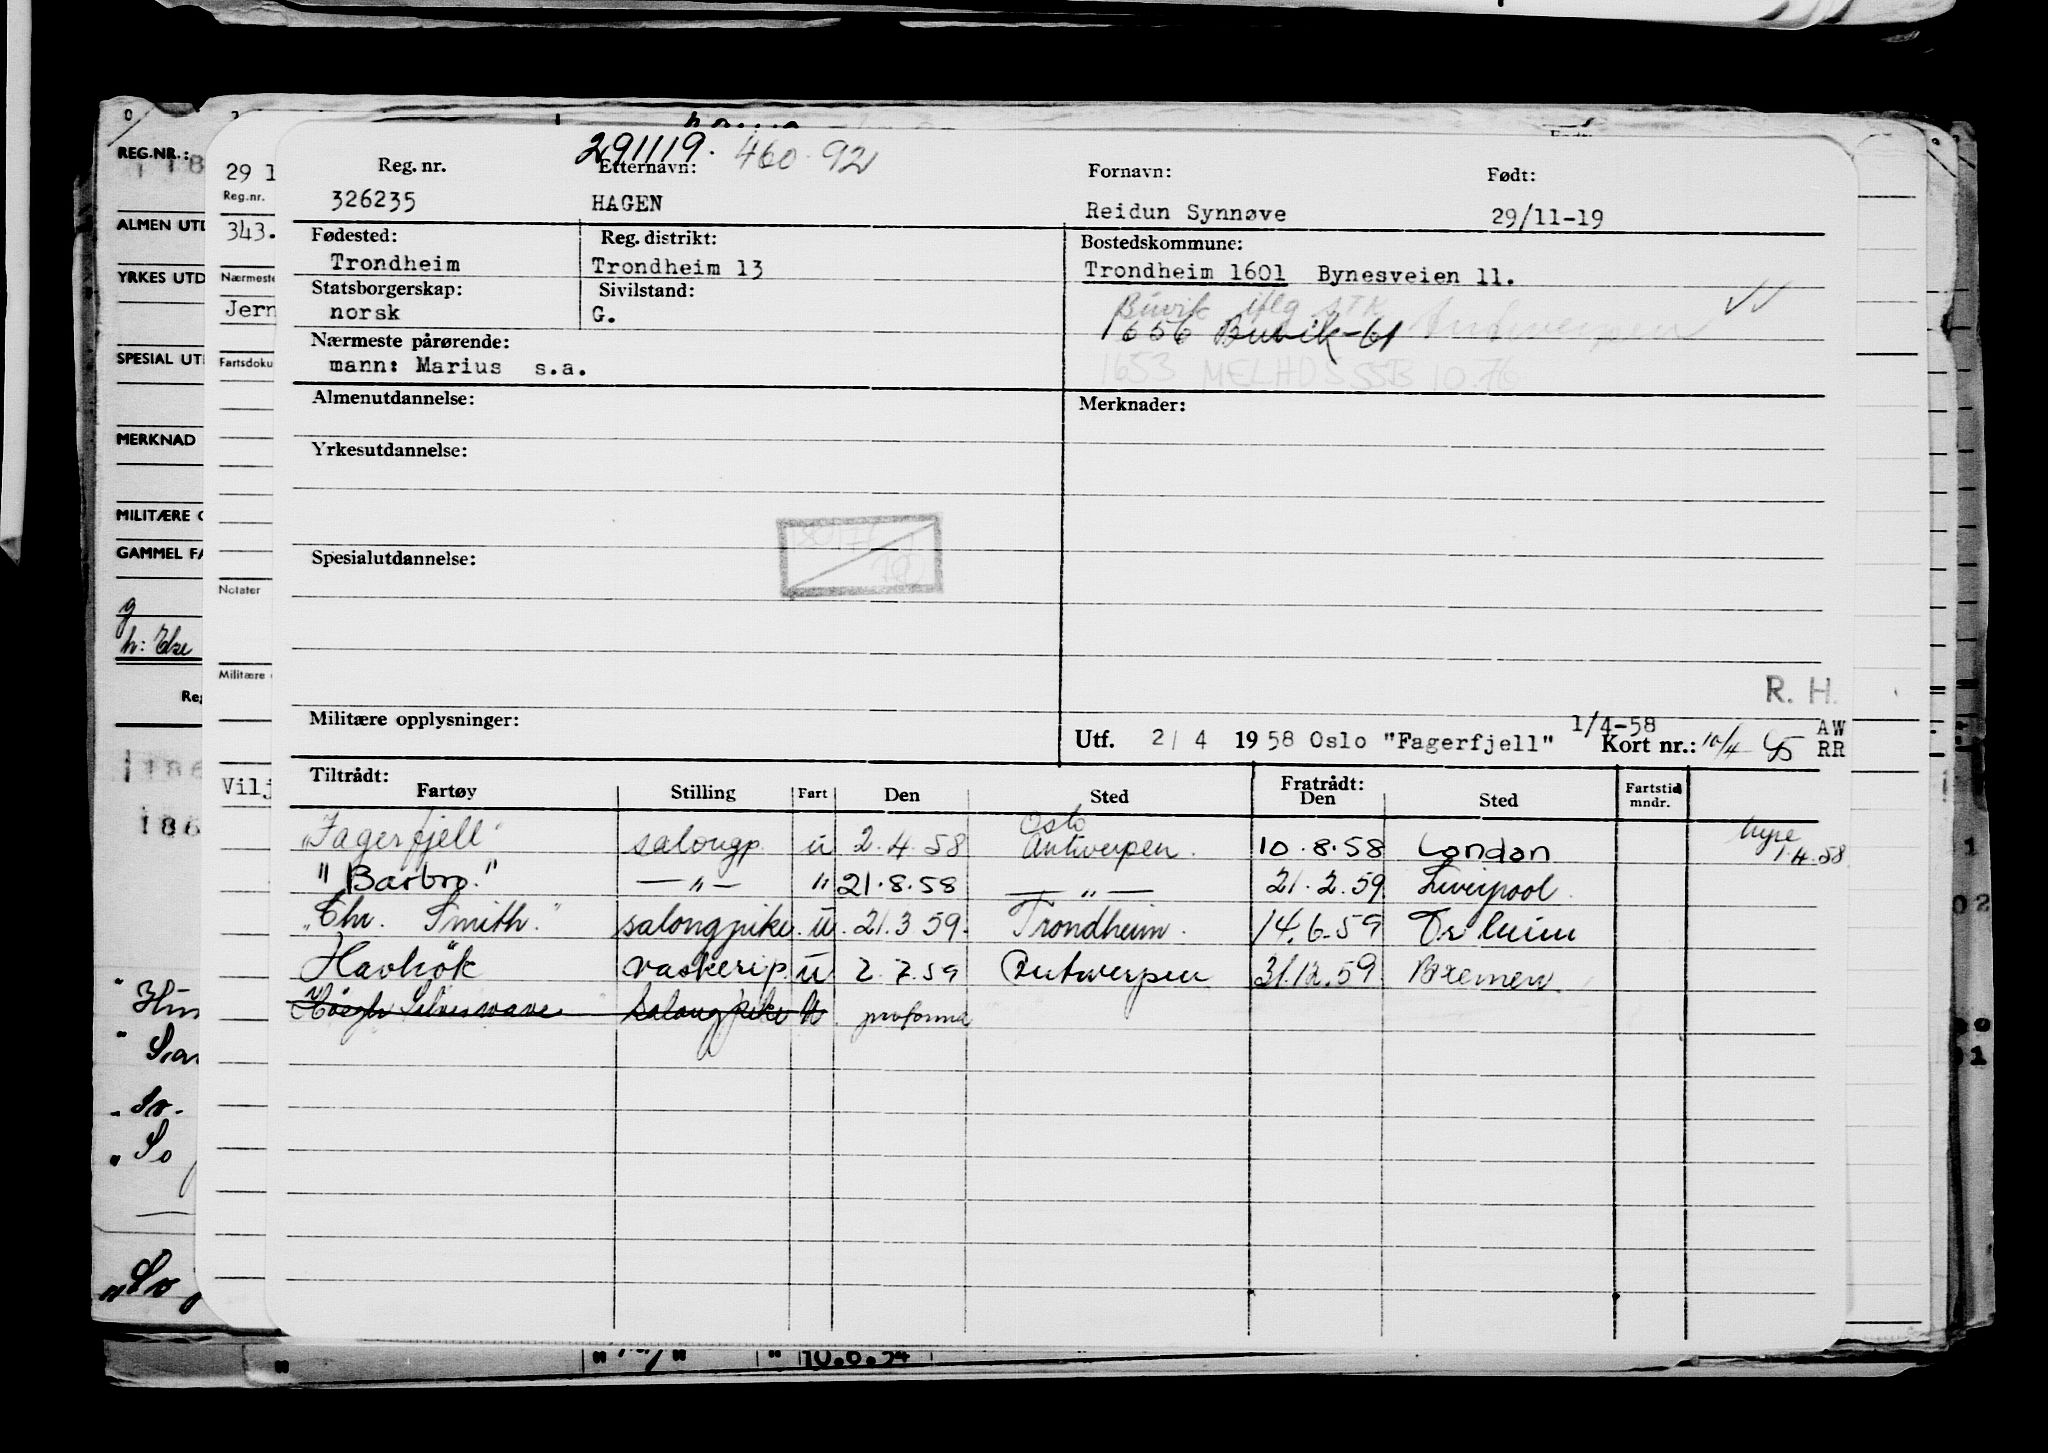 291119. 460.92
Reg. nr. Etternavn: Fornavn: Født:
326235 HAGEN Reidun Synnøve 29/11-19
Fødested: Reg. distrikt: Bostedskommune:
Trondheim Trondheim 13 Trondheim 1601 Bynesveien 11.
Statsborgerskap: Sivilstand:
norsk G.
Buvik iflg STK
1656 Buvik-61 Antwerpen
Nærmeste pårørende:
mann: Marius s.a.
1653 MELHUS SSB 10.76
Almenutdannelse: Merknader:
Yrkesutdannelse:
Spesialutdannelse:
R. H.
Militære opplysninger:
1/4-58 AW
Utf. 2/ 4 1958 Oslo "Fagerfjell" Kort nr.: 10/4 RR
Tiltrådt: Fratrådt:
Fartøy Stilling Fart Den Sted Den Sted Fartstid mndr.
Oslo
"Fagerfjell" salongp. u 2.4.58 Antwerpen. 10.8.58 London hyre 1.4.58
"Barbro." — " — " 21.8.58 — " — 21.2.59 Liverpool.
"Chr. Smith." salongpike. u. 21.3.59. Trondheim. 14.6.59 Tr heim
Havhök vaskerip. u 2.7.59 Antwerpen 31.12.59 Bremen.
Höegh Silverwave salongpike u. proforma
REG.NR.:
ALMEN UTD
YRKES UTD
SPESIAL UT
MERKNAD
MILITÆRE O
GAMMEL FA
g
h: Else
Reg
186
29 1
Reg.nr.
343.
Nærmeste
Jern
Fartsdoku
Notater
Militære
Vilj
10.6.54